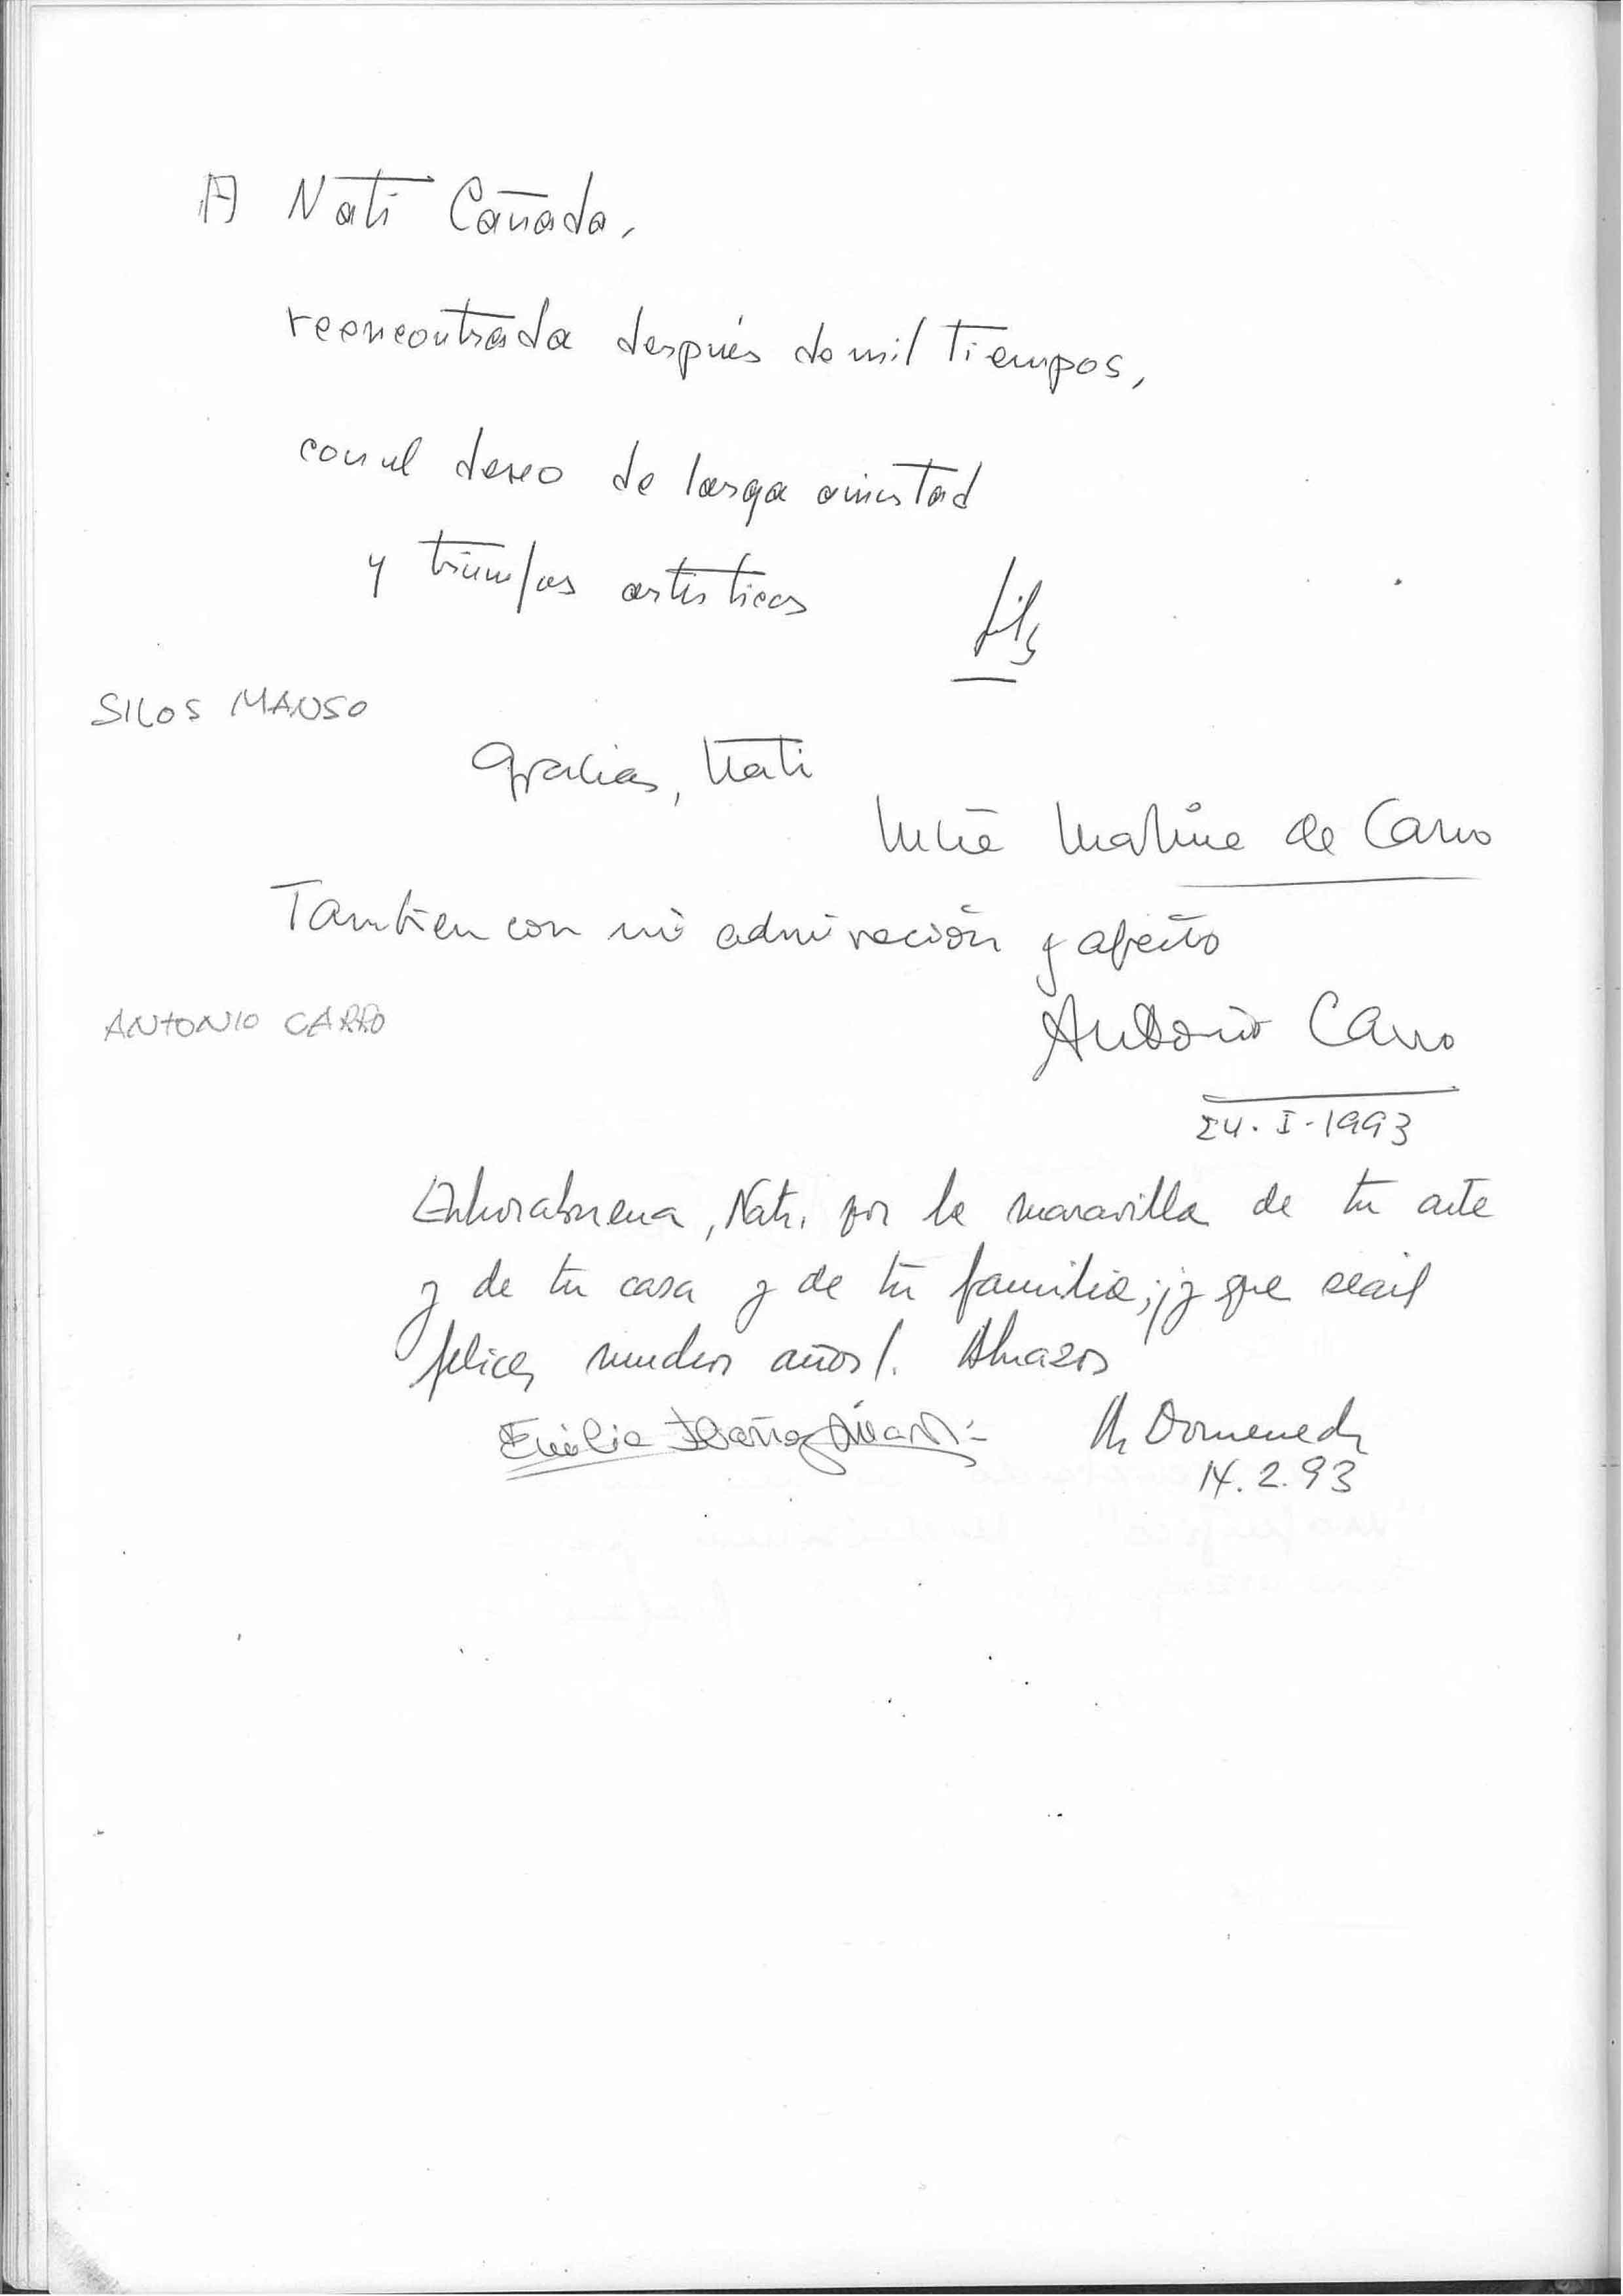 A Nati Cañada,
reencontrada después de mil tiempos,
con el deseo de larga amistad
y triunfos artísticos
SILOS MANSO
Gracias, Nati
de Carro
Tambien con mi admiración y afecto
ANTONIO CARRO
Antonio Carro
24. I. 1993
Enhorabuena, Nati, por la maravilla de tu arte
y de tu casa y de tu familia; ¡y que seais
felices muchos años!. Abrazos
Emilia Ibañez
Domenech
14.2.93